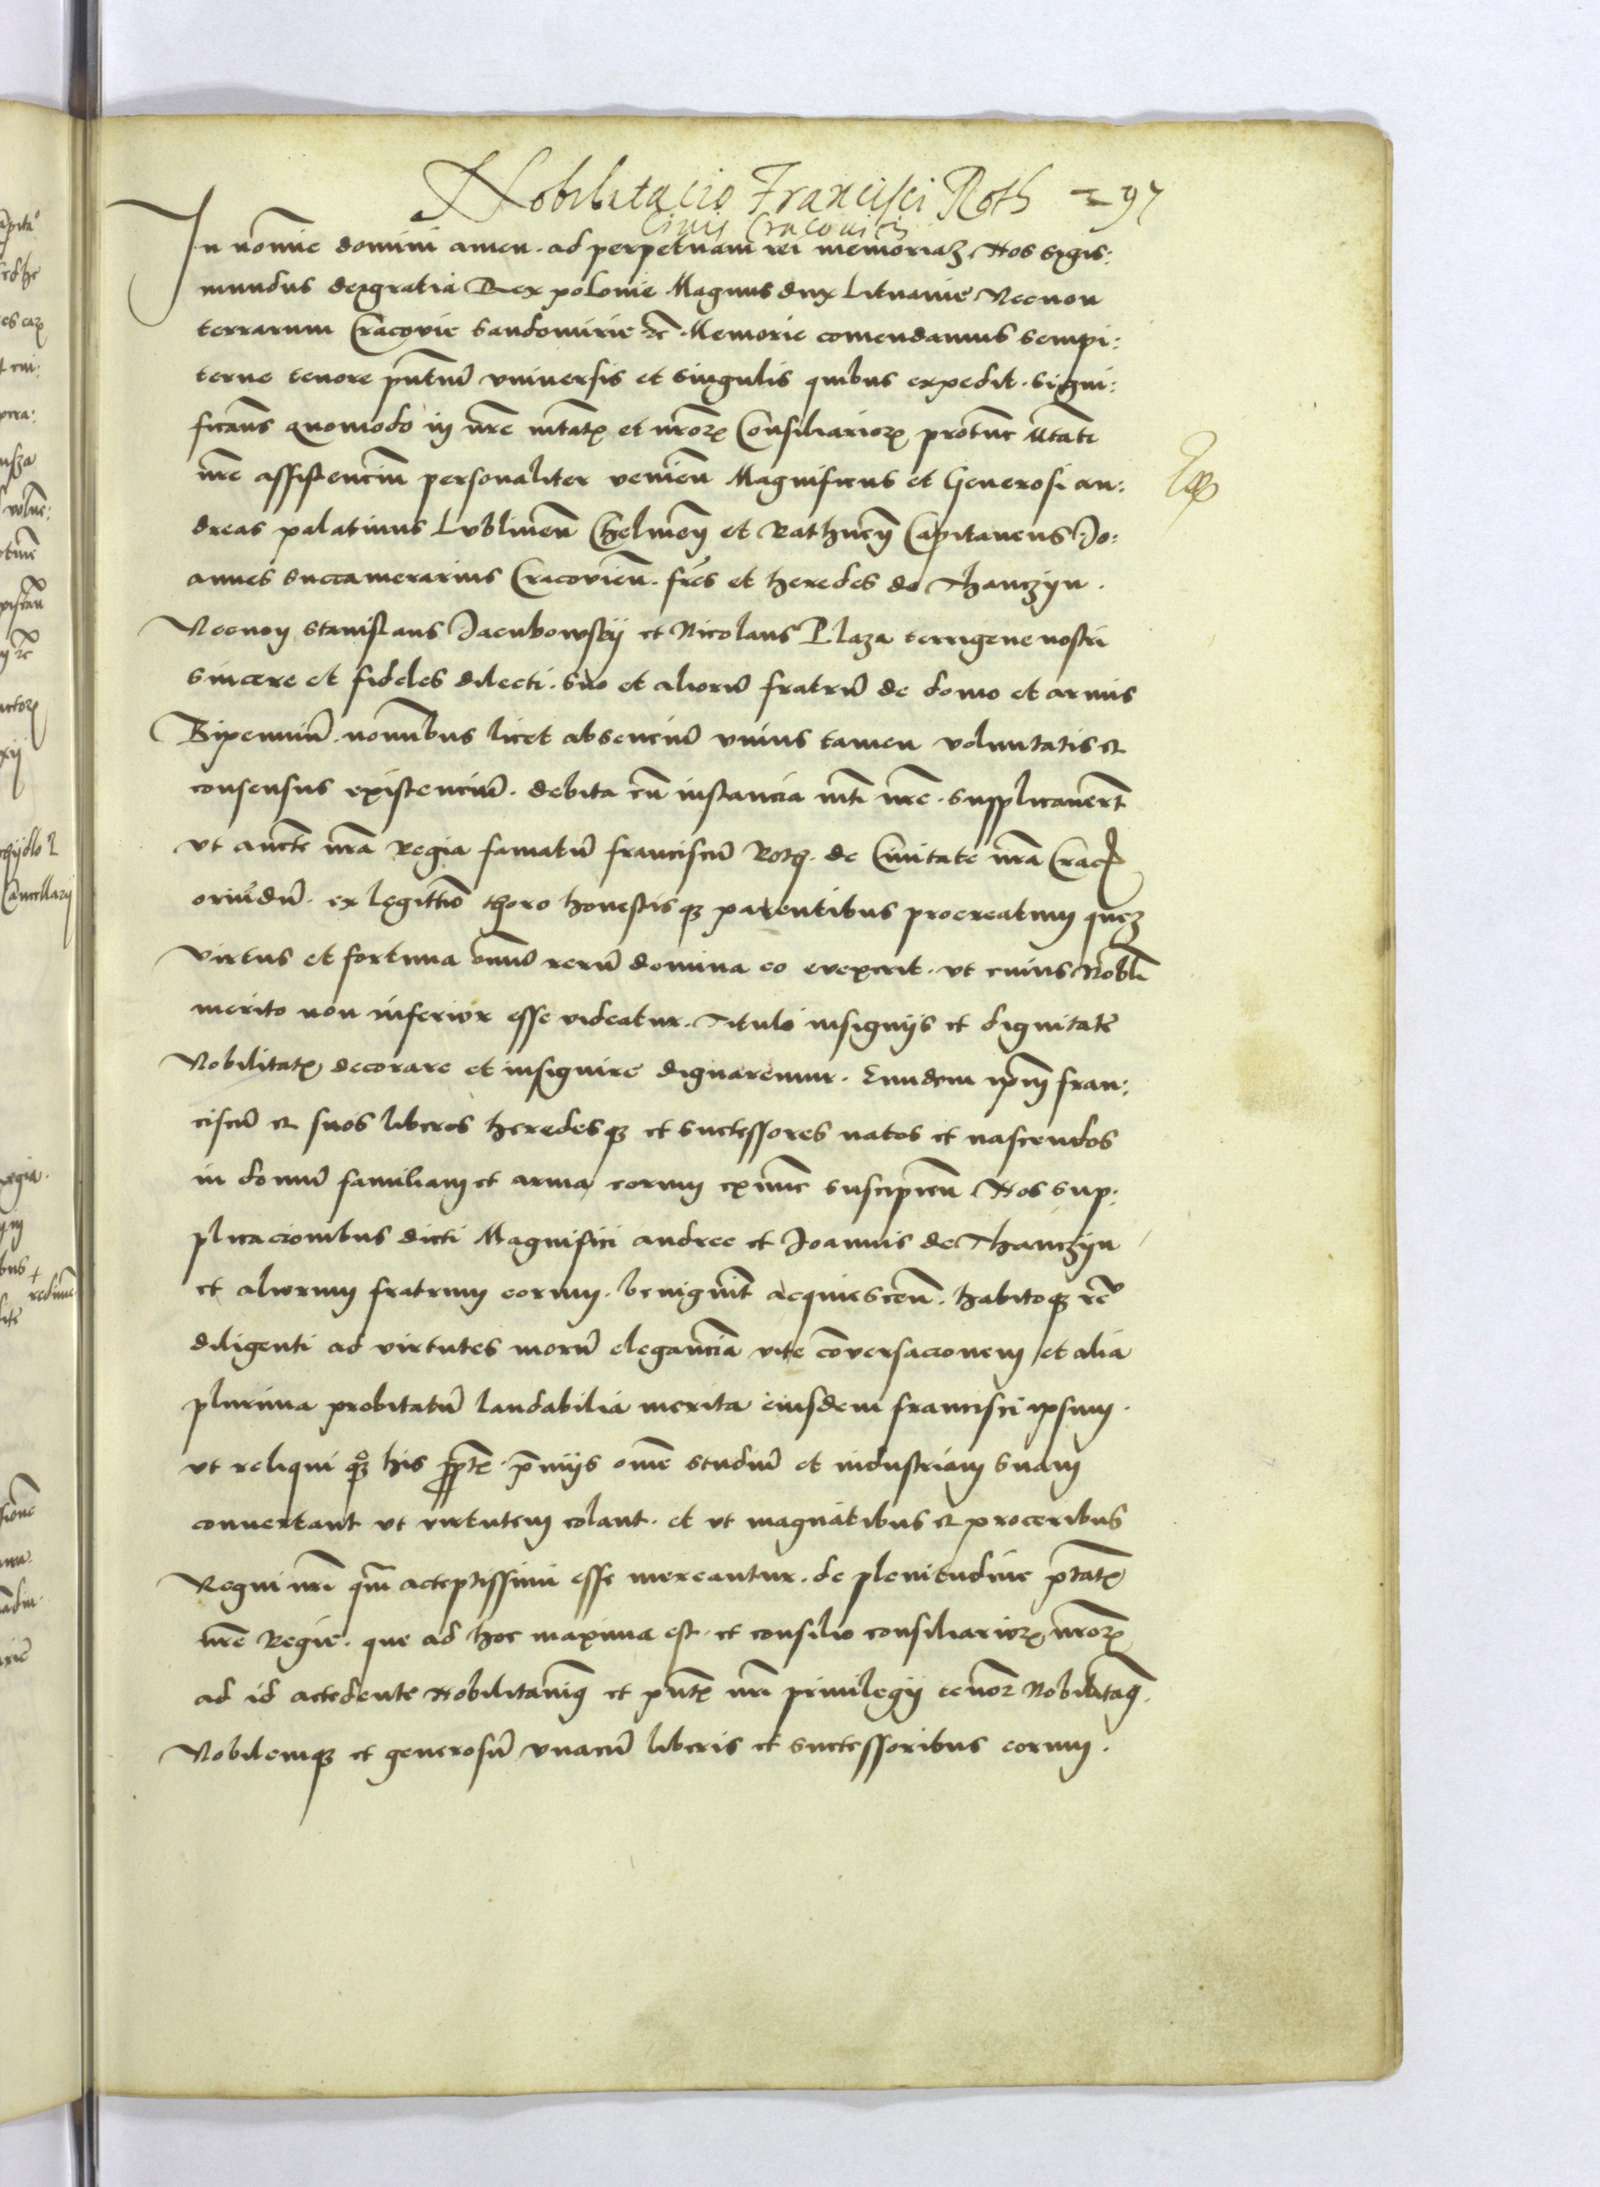 Nobilitacio Francisci Roth 297
Civis Cracovien
In noı̃e domini amen. ad perpetuam rei memoriaꝫ. Nos Sigis:
mundus deigratia Rex polonie Magnus dux Lituanie Necnon
terrarum Cracovie Sandomirie ⁊c̃ Memorie comendamus sempi:
terne tenore pñtiuꝫ vniuersis et singulis quibus expedit. signi:
ficañs quomodo in nr̃e mtatꝭ et nr̃oꝝ Consiliarioꝝ protunc Mtati
nr̃e assistenciũ personaliter venieñ Magnificus et Generosi an:
dreas palatinus Lublineñ Chelmeñ et Rathneñ Capitaneus Jo:
annes succamerarius Cracovieñ. fr̃es et heredes de Thanczyn.
Necnon Stanislaus Jacubowskij et Nicolaus Plaza terrigene nostri
sincere et fideles dilecti. suo et aliorũ fratrũ de domo et armis
Bipenniũ. nominibus licet absenciũ vnius tamen voluntatis et
consensus existenciũ. debita cũ instancia mti nr̃e. supplicauer̃t
vt aucte nr̃a Regia famatũ franciscũ Roth. de Ciuitate nr̃a Crac
oriũdũ. ex legittĩo thoro honestisqꝫ parentibus procreatum queꝫ
virtus et fortuna omniũ rerũ domina eo evexerit. vt cuius Nobli
merito non inferior esse videatur. Titulo insignijs et dignitate
Nobilitatꝭ decorare et insignire dignaremur. Eundem ip̃m fran:
ciscũ et suos liberos heredesqꝫ et successores natos et nascendos
in domũ familiam et arma eorum extũc suscipieñ Nos sup:
plicacionibus dicti Magnifici andree et Joannis de Thanczyn
et aliorum fratrum eorum. benignit̃ acquiesceñ. habitoqꝫ rc̃u
diligenti ad virtutes morũ eleganciã vite cõversacionem et alia
plurima probitatũ laudabilia merita eiusdem francisci ipsum.
vt reliqui qꝫ his ꝓptꝭ p̃mijs om̃e studiũ et industriam suam
conuertant vt virtutem colant. et vt magnatibus et proceribus
Regni nr̃i qm̃ acceptissimi esse mereantur. de plenitudine ptatꝭ
nr̃e Regie. que ad hoc maxima est. et consilio consiliarioꝝ nr̃oꝝ
ad id accedente Nobilitauimꝰ et pñtꝭ nr̃i priuilegij tenor̃ Nobilitamꝰ.
Nobilemqꝫ et generosũ vnacũ liberis et successoribus eorum.